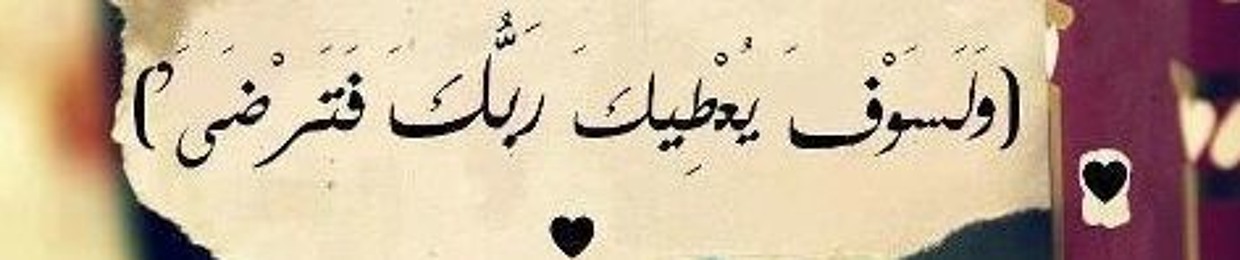 (وَلَسَوْفَ يُعْطِيكَ رَبُّكَ فَتَرْضَىٰ)